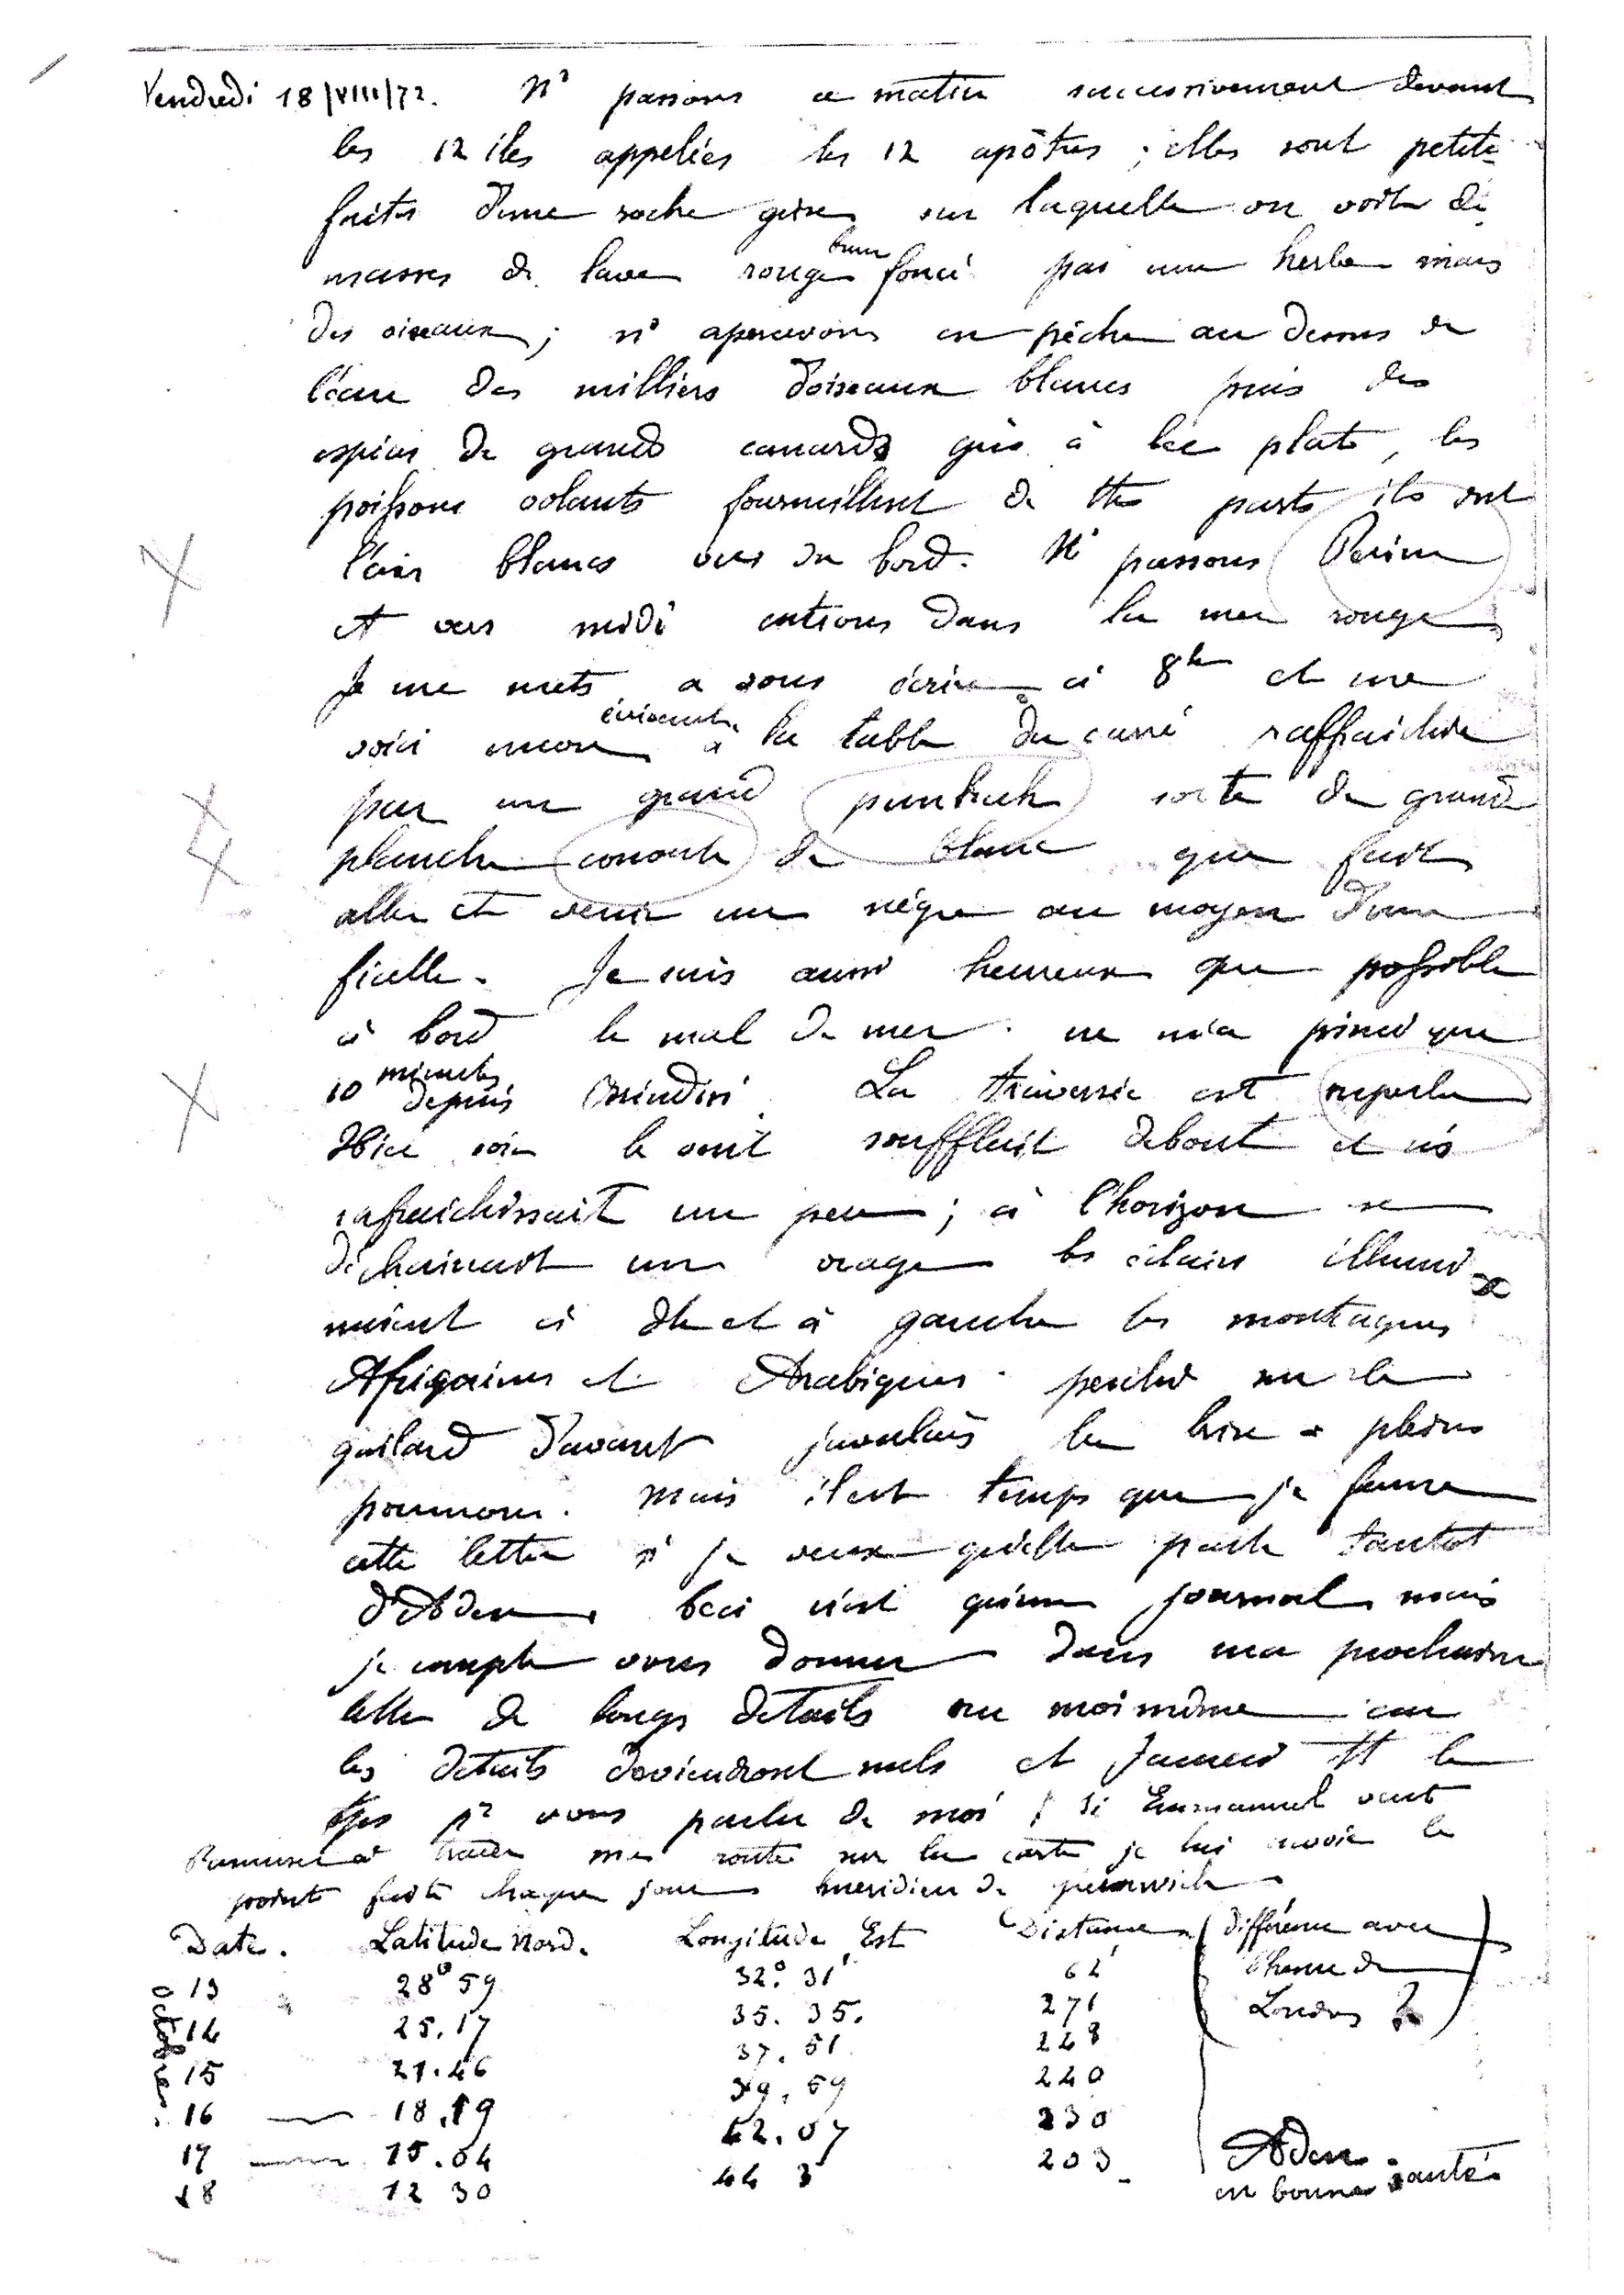 Vendredi 18/VIII/72. Ns passons ce matin successivement devant
les 12 îles appelées les 12 apôtres ; elles sont petites
faites d'une roche grise sur laquelle on voit de
masses de lave rouge brun foncé pas une herbe mais
des oiseaux ; ns apercevons en pêche au dessus de
l'eau des milliers d'oiseaux blancs puis des
espèces de grands canards gris à bec plat, les
poissons volants fourmillent de ttes parts ils ont
l'air blancs vus du bord. Ns passons Périm
et vers midi entrons dans la mer rouge
Je me mets a vous écrire à 8h et me
voici encore à la table du carré raffraichie
par un grand punkah sorte de grande
planche de blanc que fait
aller et venir un nègre au moyen d'une
ficelle. Je suis aussi heureux que possible
à bord le mal de mer ne m'a pincé que
10 minutes depuis Brindisi. La traversée est superbe
Hier soir le vent soufflait debout et ns
rafraichissait un peu ; à l'horizon se
déchainait un orage les éclairs illumi
naient à dte et à gauche les montagnes
Africaines et Arabiques. perché sur le
gailard d'avant j'avalais la brise a pleins
poumons. Mais il est temps que je ferme
cette lettre si je veux qu'elle parte tantot
d'Aden. Ceci n'est qu'un journal mais
je compte vous donner dans ma prochaine
lettre de longs détails sur moi même car
les détails deviendront nuls et j'aurai tt le
tps pr vous parler de moi si Emmanuel veut
s'amuser à tracer ma route sur la carte je lui envoie le
point fait chaque jour méridien de greenwich
Date. Latitude Nord. Longitude Est Distance (différence avec
l'heure de
Londres ?)
Octobre
13 28° 59 32° 31' 62
14 25.17 35. 35. 271
15 21.46 37. 51 248
16 18.19 39. 59 240
17 15.04 42. 07 230
18 12 30 44 3 203
Aden
en bonne santé